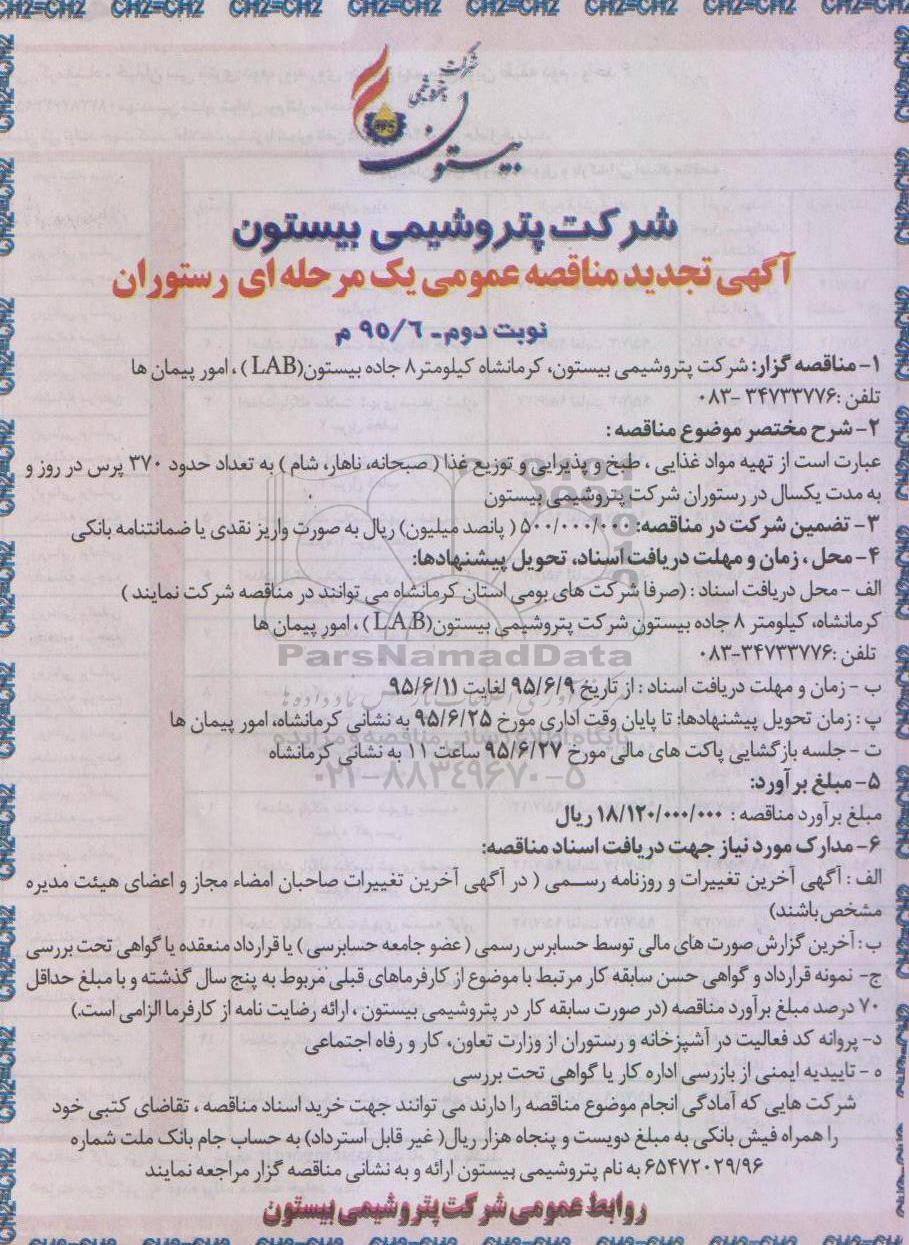 CH2=CH2 CH2=CH2 CH2=CH2 CH2=CH2 CH2=CH2 CH2=CH2 CH2=CH2 CH2=CH2
شرکت پتروشیمی
بیستون
شرکت پتروشیمی بیستون
آگهی تجدید مناقصه عمومی یک مرحله ای رستوران
نوبت دوم- ۹۵/۶ م
۱- مناقصه گزار: شرکت پتروشیمی بیستون، کرمانشاه کیلومتر ۸ جاده بیستون(LAB) ، امور پیمان ها
تلفن :۳۴۷۳۳۷۷۶ -۰۸۳
۲- شرح مختصر موضوع مناقصه :
عبارت است از تهیه مواد غذایی ، طبخ و پذیرایی و توزیع غذا ( صبحانه، ناهار، شام ) به تعداد حدود ۳۷۰ پرس در روز و
به مدت یکسال در رستوران شرکت پتروشیمی بیستون
۳- تضمین شرکت در مناقصه: ۵۰۰/۰۰۰/۰۰۰ ( پانصد میلیون) ریال به صورت واریز نقدی یا ضمانتنامه بانکی
۴- محل ، زمان و مهلت دریافت اسناد، تحویل پیشنهادها:
الف - محل دریافت اسناد : (صرفا شرکت های بومی استان کرمانشاه می توانند در مناقصه شرکت نمایند )
کرمانشاه، کیلومتر ۸ جاده بیستون شرکت پتروشیمی بیستون(LAB ) ، امور پیمان ها
ParsNamadData
تلفن :۳۴۷۳۳۷۷۶-۰۸۳
ب - زمان و مهلت دریافت اسناد : از تاریخ ۹۵/۶/۹ لغایت ۹۵/۶/۱۱
پ : زمان تحویل پیشنهادها: تا پایان وقت اداری مورخ ۹۵/۶/۲۵ به نشانی کرمانشاه، امور پیمان ها
ت - جلسه بازگشایی پاکت های مالی مورخ ۹۵/۶/۲۷ ساعت ۱۱ به نشانی کرمانشاه
۰۲۱-۸۸۳۴۹۶۷۰-۵
۵- مبلغ برآورد:
مبلغ برآورد مناقصه : ۱۸/۱۲۰/۰۰۰/۰۰۰ ریال
۶- مدارک مورد نیاز جهت دریافت اسناد مناقصه:
الف : آگهی آخرین تغییرات و روزنامه رسمی ( در آگهی آخرین تغییرات صاحبان امضاء مجاز و اعضای هیئت مدیره
مشخص باشند)
ب : آخرین گزارش صورت های مالی توسط حسابرس رسمی ( عضو جامعه حسابرسی ) یا قرارداد منعقده یا گواهی تحت بررسی
ج- نمونه قرارداد و گواهی حسن سابقه کار مرتبط با موضوع از کارفرماهای قبلی مربوط به پنج سال گذشته و با مبلغ حداقل
۷۰ درصد مبلغ برآورد مناقصه (در صورت سابقه کار در پتروشیمی بیستون ، ارائه رضایت نامه از کارفرما الزامی است.)
د- پروانه کد فعالیت در آشپزخانه و رستوران از وزارت تعاون، کار و رفاه اجتماعی
ه - تاییدیه ایمنی از بازرسی اداره کار یا گواهی تحت بررسی
شرکت هایی که آمادگی انجام موضوع مناقصه را دارند می توانند جهت خرید اسناد مناقصه ، تقاضای کتبی خود
را همراه فیش بانکی به مبلغ دویست و پنجاه هزار ریال( غیر قابل استرداد) به حساب جام بانک ملت شماره
۶۵۴۷۲۰۲۹/۹۶ به نام پتروشیمی بیستون ارائه و به نشانی مناقصه گزار مراجعه نمایند
روابط عمومی شرکت پتروشیمی بیستون